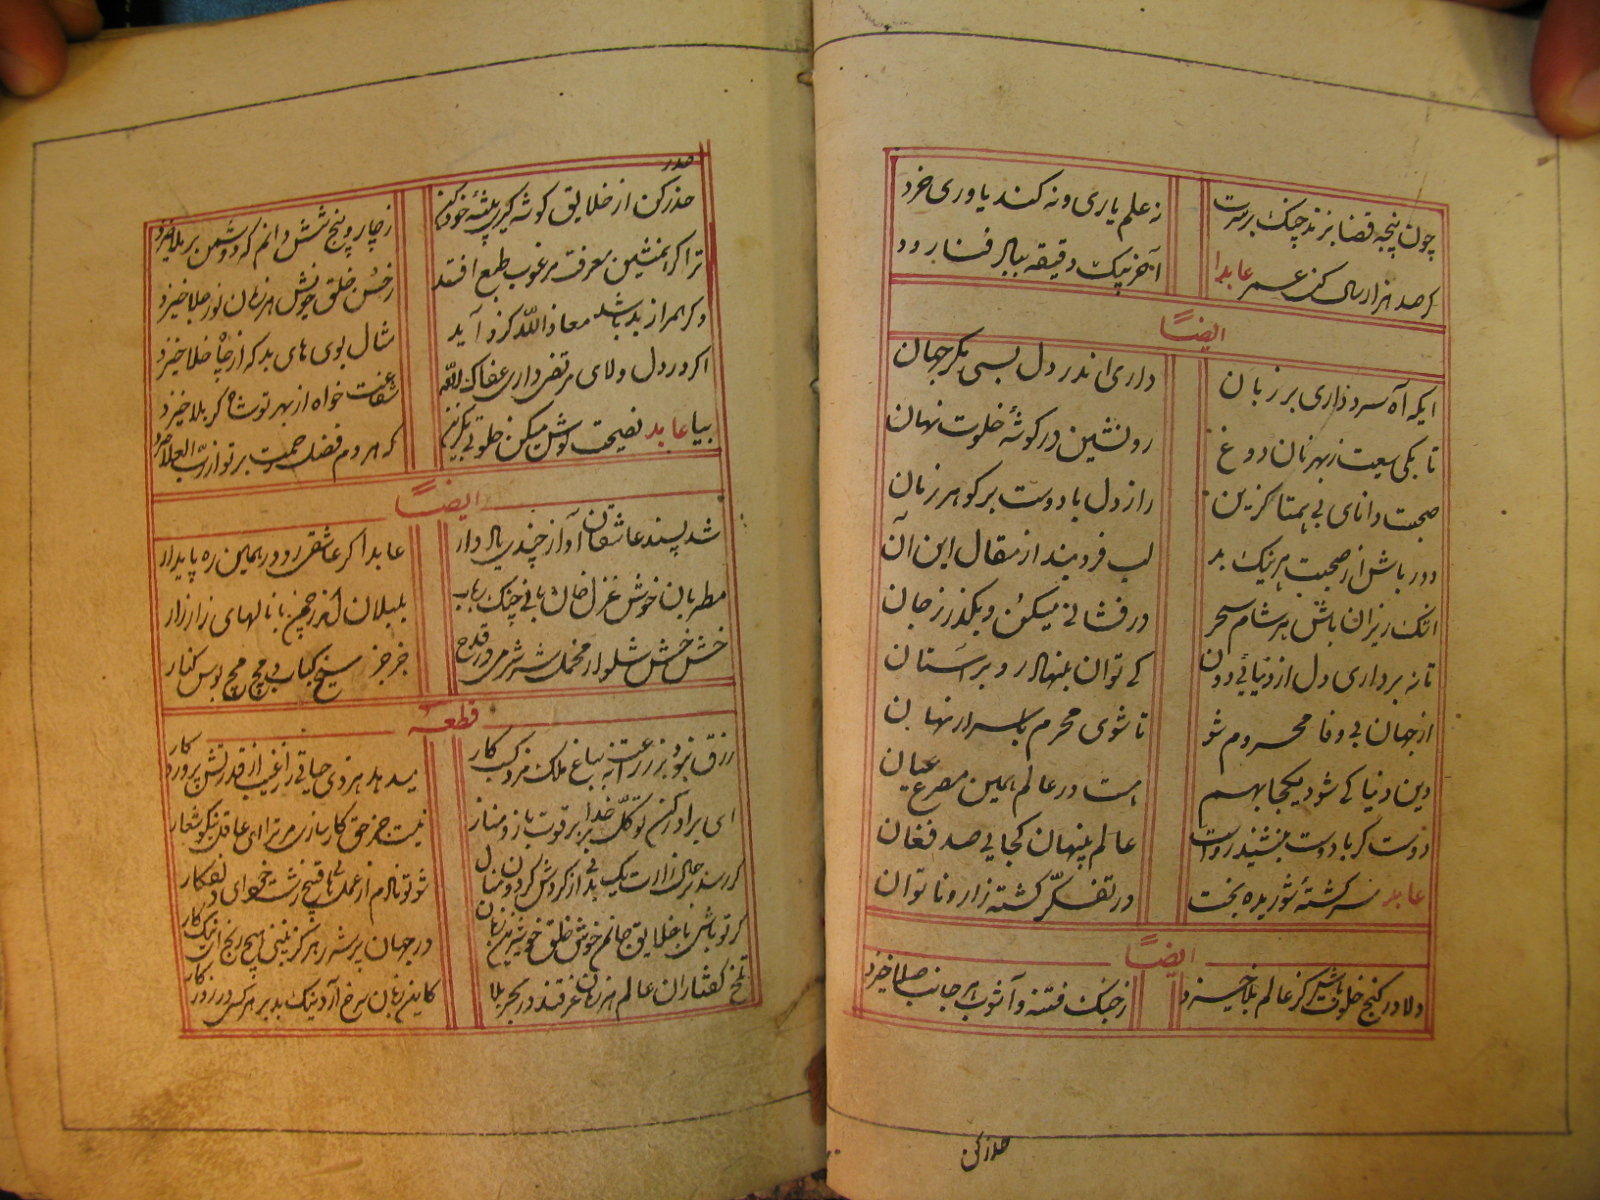 چون پنجه قضا بزند چنک بر سرت نه علم یاری و نه کند یاوری خرد
کر صد هزار سال کنی عمر عابدا آخر به یک دقیقه ببال فنا رود
ایضاً
ایکه آه سرد داری بر زبان داری اندر دل بسی مکر جهان
تا بکی سعیت ز بهر نان دوغ رو نشین در کوشهٔ خلوت نهان
صحبت دانای بی همتا کزین راز دل با دوست بر کو هر زمان
دور باش از صحبت هر نیک بد لب فروبند از مقال این آن
اشک ریزان باش هر شام سحر در فشانی میکن و بکذر ز جان
تا نه برداری دل از دنیائی دون کی توان بنهاد رو بر آستان
از جهان بی وفا محروم شو تا شوی محرم باسرار نهان
دین دنیا کی شود یکجا بهم هست در عالم همین مصرع عیان
دوست کر با دوست بنشیند رواست عالم پنهان کجایی صد فغان
عابد سر کشتهٔ شوریده بخت در تفکّر کشته زار و ناتوان
ایضاً
دلا در کنج خلوت باش کز عالم بلا خیزد ز جنک فتنه و آشوب هر جانب صلا خیزد
حذر کن
حذر کن از خلایق کوشه کیری پیشهٔ خود کن ز چار و پنج شش دانم که دوشمن بر ملا خیزد
ترا کر همنشین معرفت مرغوب طبع افتد ز حُسن خلق خویش هر زمان نور جلا خیزد
و کر همراز بد باشد معاذالله کزو آید مثال بوی های بد که از جای خلا خیزد
اکر در دل ولای مرتضی داری عفاک الله شفاعت خواه از بهر تو شاه کربلا خیزد
بیا عابد نصیحت کوش میکن که هر دم فضل رحمت بر تو از ربّ العلا خیزد
ایضاً
شد پسند عاشقان آواز چندین یال دار عابدا کر عاشقی رو در همین ره پایدار
مطربان خوش غزل خان با نی چنک رباب بلبلان اندر چمن با نالهای زار زار
خش خش شلوار محمل شر شر می در قدح جز جز سیخ کباب مچ مچ بوس کنار
قطعه
رزق نبود بزراعت نه بباغ ملک مزد کسب کار میدهد هر ذی حیاتی را ز غیب از قدرتش پروردکار
ای برادر کن توکّل بر خدا بر قوت بازو مناز نیست جز حق کارسازی مر ترا ای عاقل نیکو شعار
کر رسد بر شو تو نادم از عمل های قبیح زشت خود ای دلفکار
کر تو باشی با خلایق در جهان بر شه ره هرکز نبینی هیچ رنج از نیک کار
تلخ کفتاران عالم هر زمان غرقند در بحر بلا کاین زبان سرخ آرد نیک بد بر هر کس در روزکار